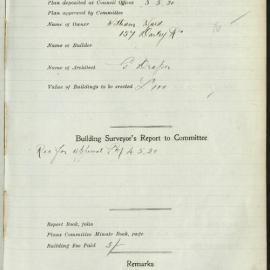 Plan deposited at Council Offices 3.5.20
Plan approved by Committee
Name of Owner William Ward
157 Darley Rd
Name of Builder
Name of Architect G Draper
Value of Buildings to be erected £
Building Surveyor's Report to Committee
Rec for approval 4.5.20
Report Book, folio
Plans Committee Minute Book, page
Building Fee Paid 5/-
Remarks